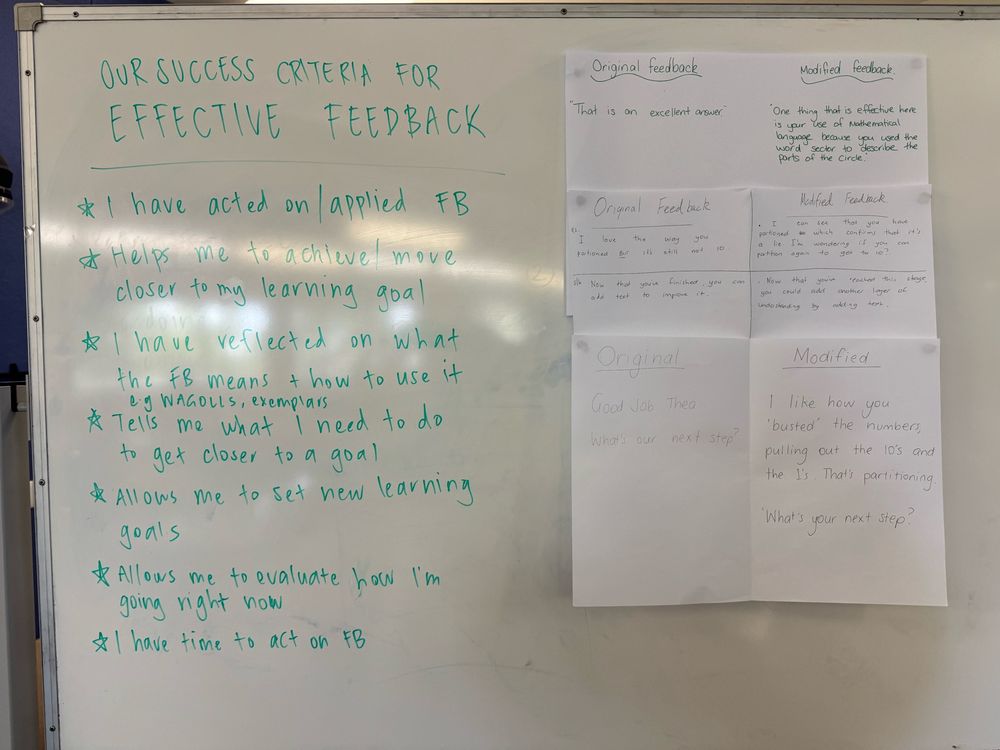 OUR SUCCESS CRITERIA FOR
EFFECTIVE FEEDBACK
☆ I have acted on/applied FB
☆ Helps me to achieve/move
closer to my learning goal
☆ I have reflected on what
the FB means + how to use it
e.g WAGOLLS, exemplars
☆ Tells me what I need to do
to get closer to a goal
☆ Allows me to set new learning
goals
☆ Allows me to evaluate how I'm
going right now
☆ I have time to act on FB
Original feedback
"That is an excellent answer"
Modified feedback
"One thing that is effective here
is your use of Mathematical
language because you used the
word 'sector' to describe the
parts of the circle."
Original Feedback
I love the way you
partioned But it's still not 10.
Now that you've finished, you can
add text to improve it.
Modified Feedback
. I can see that you have
partioned which confirms that it's
a lie. I'm wondering if you can
partition again to get to 10?
. Now that you've reached this stage,
you could add another layer of
understanding by adding text.
Original
Good Job Thea
What's our next step?
Modified
I like how you
"busted" the numbers,
pulling out the 10's and
the 1's. That's partitioning.
"What's your next step?